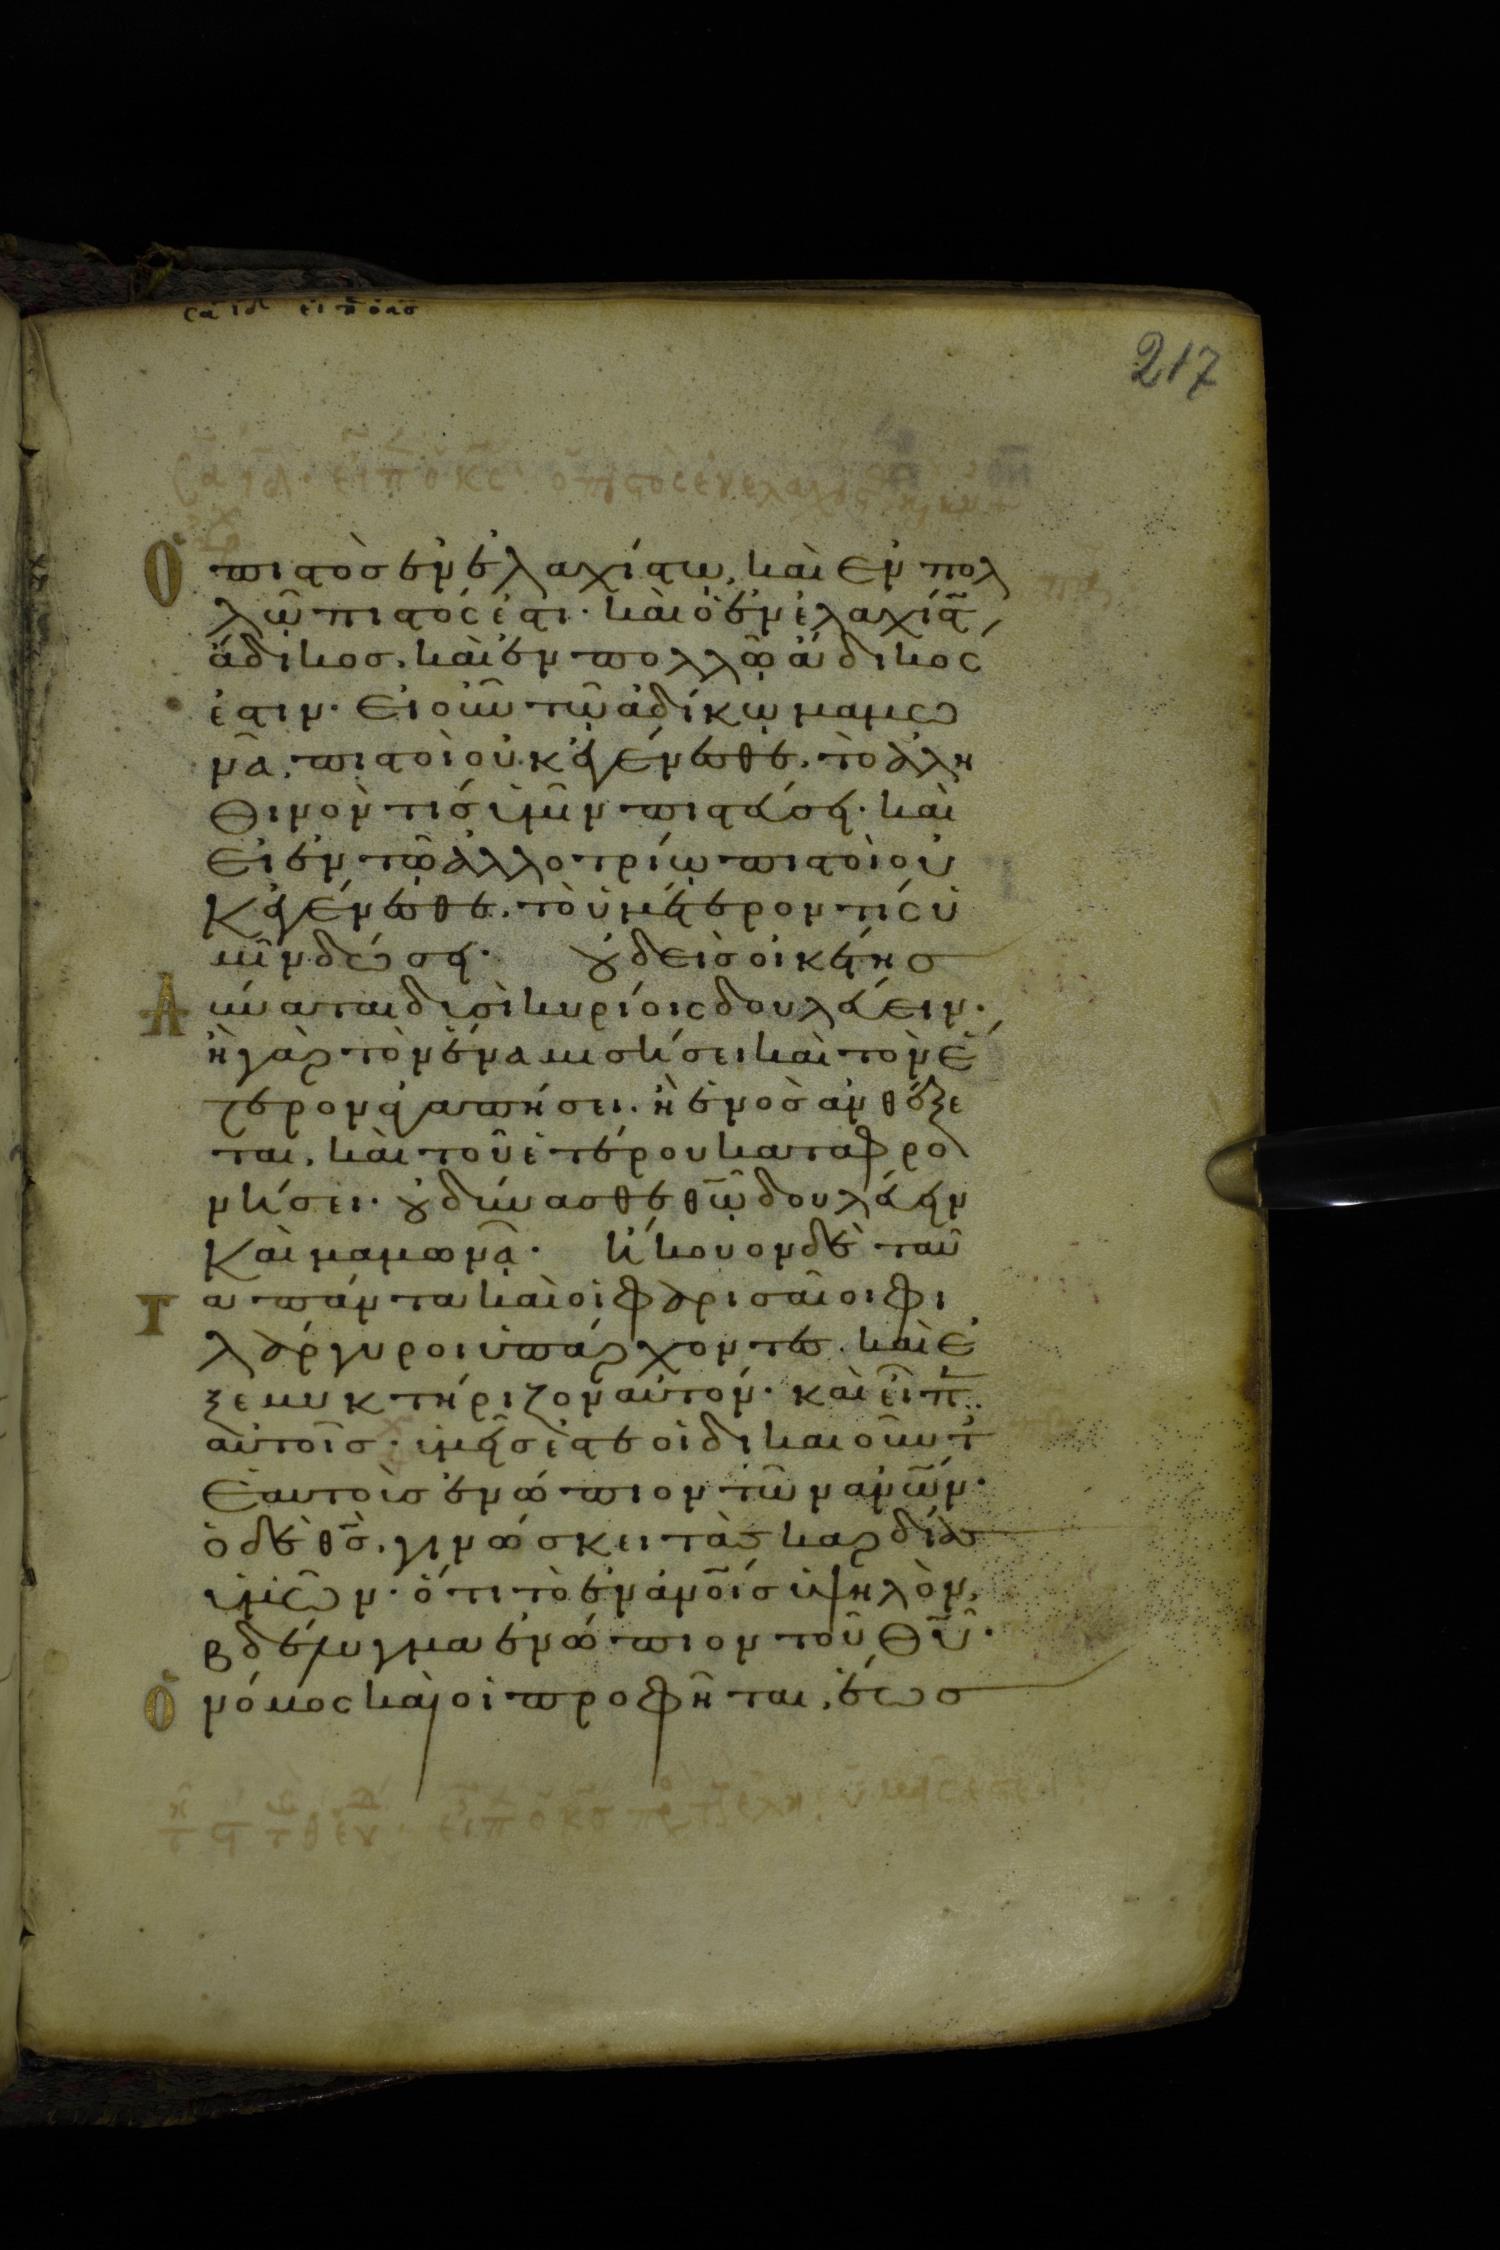 217
Ὁ πιστὸσ ἐν ἐλαχίστω, καὶ ἐν πολ
λῶ πιστός ἐστι· καὶ ὁ ἐν ἐλαχίστ
ἄδικοσ, καὶ ἐν πολλῶ ἄδικος
ἐστιν· Εἰ οὖν τῶ ἀδίκω μαμω
νᾶ, πιστοὶ οὐκ ἐγένεσθε, τὸ ἀλη
θινὸν τίσ ὑμῖν πιστεύσει· καὶ
εἰ ἐν τῶ ἀλλοτρίω πιστοὶ οὐ
κ ἐγένεσθε, τὸ ὑμέτερον τίς ὑ
μῖν δώσει· οὐδεὶσ οἰκέτησ
δύναται δυσὶ κυρίοις δουλεύειν·
ἢ γὰρ τὸν ἕνα μισήσει καὶ τὸν ἕ
τερον ἀγαπήσει. ἢ ἑνὸσ ἀνθέξε
ται, καὶ τοῦ ἑτέρου καταφρο
νήσει· οὐ δύνασθε θῶ δουλεύειν
καὶ μαμωνᾶ· ἤκουον δὲ ταῦ
τα πάντα καὶ οἱ φαρισαῖοι φι
λάργυροι ὑπάρχοντες. καὶ ἐ
ξεμυκτήριζον αὐτόν· καὶ εἶπ
αὐτοῖσ· ὑμεῖσ ἐστε οἱ δικαιοῦντ
ἑαυτοὺσ ἐνώπιον τῶν ἀνῶν·
ὁ δὲ θσ, γινώσκει τὰσ καρδίασ
ὑμῶν· ὅτι τὸ ἐν ἀνοίσ ὑψηλὸν,
βδέλυγμα ἐνώπιον τοῦ θυ·
Ὁ νόμος καὶ οἱ προφῆται, ἕωσ